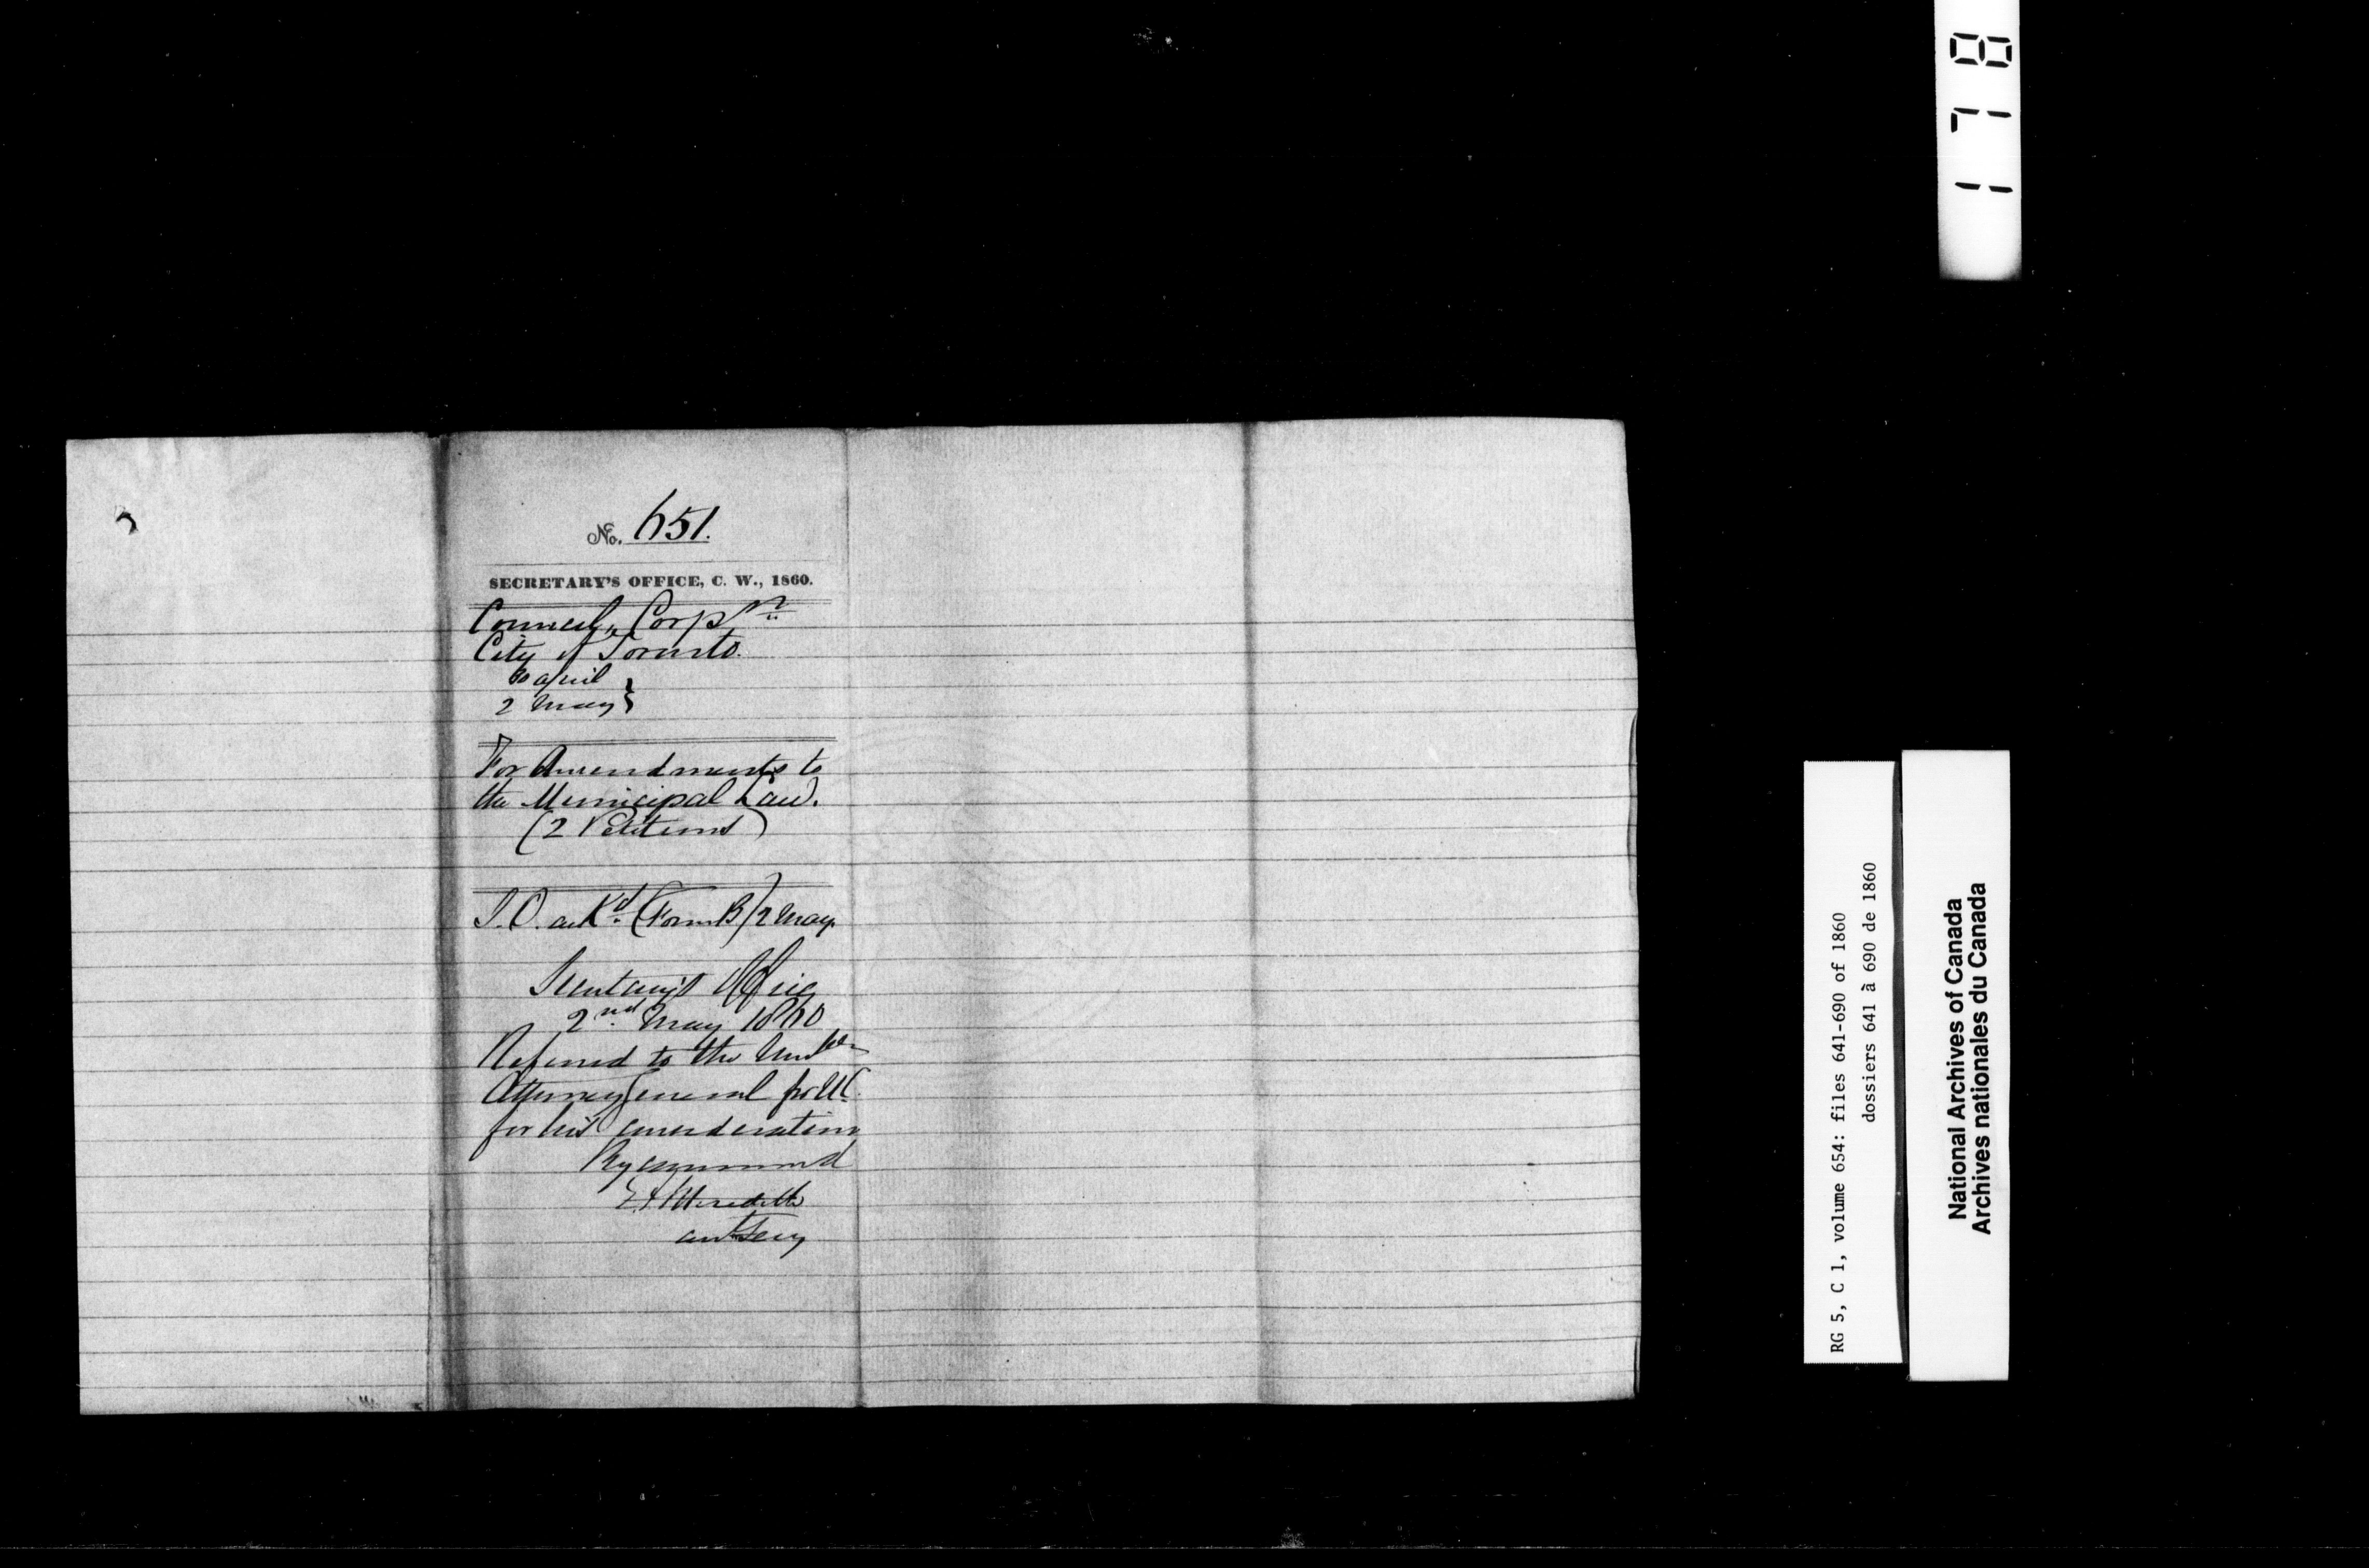 No. 651.
SECRETARY'S OFFICE, C. W., 1860.
Council, Corpn
City of Toronto.
April
2 May }
For Amendments to
the Municipal Law.
(2 Petitions)
ackd. (Form B) 2 May.
Secretary's Office
2nd. May 1860
Referred to the Honble
Attorney General for UC.
for his consideration
By command
E A Meredith
asst Secy
178
RG 5, C 1, volume 654: files 641-690 of 1860
dossiers 641 à 690 de 1860
National Archives of Canada
Archives nationales du Canada